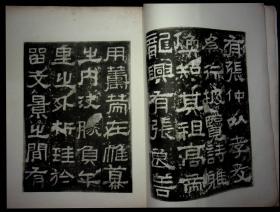 有張仲以孝友
為行披覽詩雅
煥知其祖高帝
龍興有張良善
用籌策在帷幕
之內決勝負千
里之外析珪於
留文景之間有